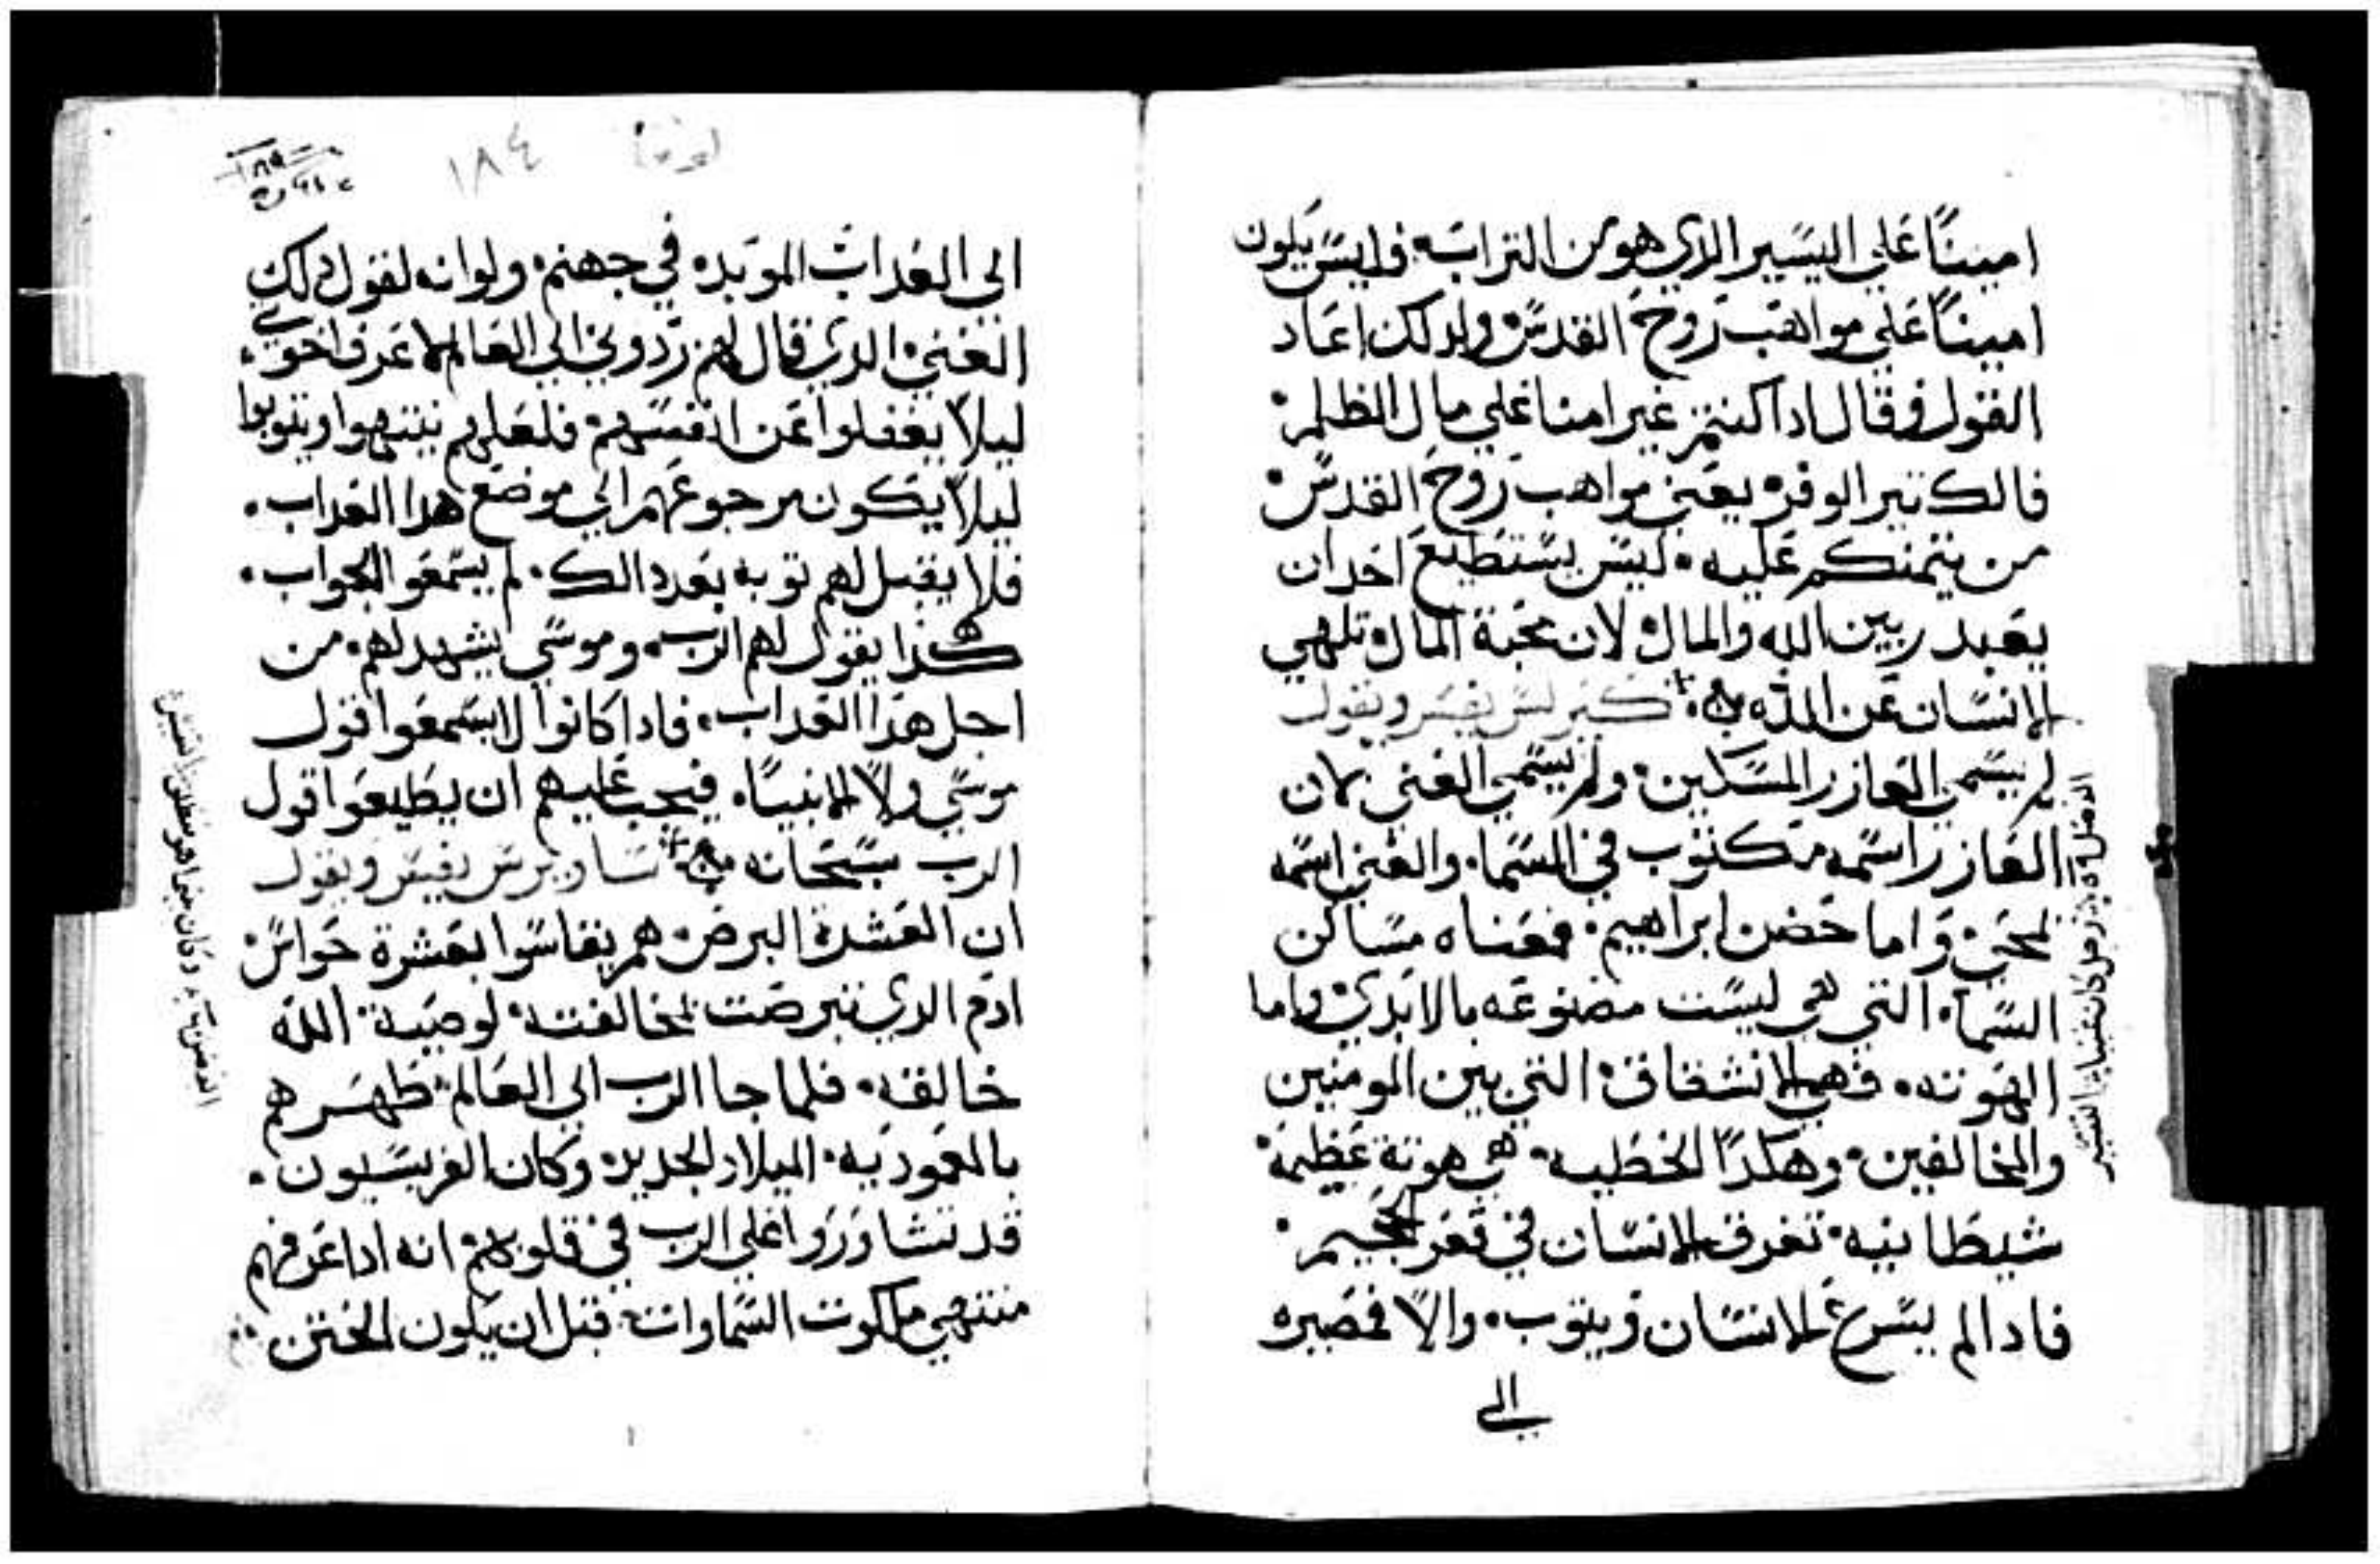 امينًا علي اليسير الدي هو من التراب فليس يكون
امينًا علي مواهب روح القدس ولدلك اعاد
القول وقال ادا كنتم غير امنا علي مال الظلم
فالكتير الوفره يعني مواهب روح القدس
من يتمنكم عليه ليس يستطيع احد ان
يعبد ربين الله والمال لان محبة المال تلهي
الانسان عن الله كيرلس يفسر ويقول
لم يسمي العازر المسكين ولم يسمي الغني لان
العازر اسمه مكتوب في السما والغني اسمه
لمحي واما حضن ابراهيم فمعناه مساكن
السما التي هي ليست مصنوعه بالايدي واما
الهوته فهي الانشقاق التي بين المومنين
والمخالفين وهكدا الخطيه هي هوتة عظيمة
شيطانيه تغرق الانسان في قعر الجحيم
فادا لم يسرع الانسان ويتوب والا فمصيره
الي
لوقا
١٨٤
الي العداب الموبده في جهنم ولوانه لقول دلك
الغني الدي قال لهم ردوني الي العالم لاعرف اخوتي
ليلا يغفلوا عن انفسهم فلعلهم ينتهوا ويتوبوا
ليلا يكون مرجوعهم الي موضع هدا العداب
فلا يقبل لهم توبه بعد دالك لم يسمعوا الجواب
هكذا يقول لهم الرب وموسي يشهد لهم من
اجل هدا العداب فادا كانوا لا يسمعوا قول
موسي ولا الانبيا فيجب عليهم ان يطيعوا قول
الرب سبحانه ساويرس يفسر ويقول
ان العشرة البرص هم يقاسوا بعشرة حواس
ادم الدي تبرصت لمخالفته لوصية الله
خالقه فلما جا الرب الي العالم طهرهم
بالمعموديه الميلاد الجديد وكان الفريسيون
قد تشاوروا علي الرب في قلوبهم انه ادا عرفهم
منتهي ملكوت السماوات قبل ان يكون الختن